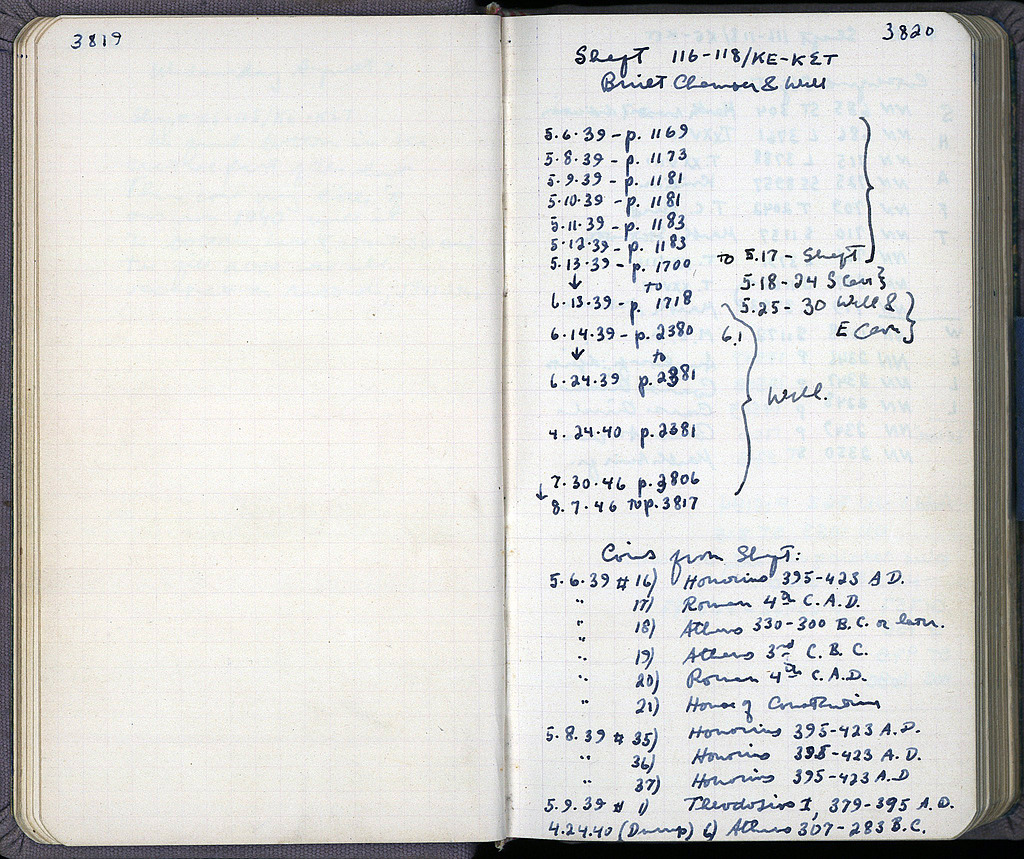 3819
3820
Shaft 116-118/KE-KET
Built Chamber & Well
5.6.39 - p. 1169
5.8.39 - p. 1173
5.9.39 - p. 1181
5.10.39 - p. 1181
5.11.39 - p. 1183
5.12.39 - p. 1183
5.13.39 - p. 1700 to 5.17 - Shaft
↓ to 5.18-24 S Cav}
6.13.39 - p. 1718 5.25-30 Well &
E Cav.}
6.14.39 - p. 2380 6.1
↓ to
6.24.39 p. 2381 Well.
4.24.40 p. 2381
7.30.46 p. 3806
↓ 8.7.46 to p. 3817
Coins from Shaft:
5.6.39 # 16) Honorius 395-423 A.D.
" 17) Roman 4th C. A.D.
" 18) Athens 330-300 B.C. or later.
" 19) Athens 3rd C. B.C.
" 20) Roman 4th C. A.D.
" 21) House of Constantine
5.8.39 # 35) Honorius 395-423 A.D.
" 36) Honorius 395-423 A.D.
" 37) Honorius 395-423 A.D
5.9.39 # 1) Theodosius I, 379-395 A.D.
4.24.40 (Dump) 6) Athens 307-283 B.C.